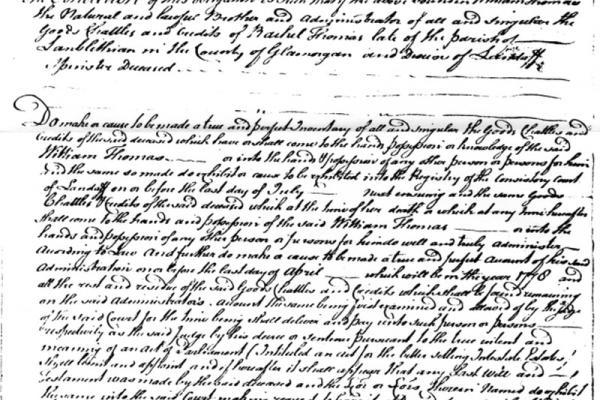 The Condition of this Obligation is Such that if the above bounden William Thomas
the Natural and lawful Brother and Administrator of all and Singular the
Goods Chattles and Credits of Rachel Thomas late of the parish of
Lanblethian in the County of Glamorgan and Diocese of Landaff
Spinster Deceased
Do make a cause to be made a true and perfect Inventory of all and singular the Goods Chattles and
Credits of the said deceased which have or shall come to the hands possession or knowledge of the said
William Thomas or into the hands & possession of any other person or persons for him
And the same so made do exhibit or cause to be exhibited into the Registry of the Consistory Court
of Landaff on or before the last day of July next ensuing and the same Goods
Chattles & Credits of the said deceased which at the time of her death or which at any time hereafter
shall come to the hands and possession of the said William Thomas or into the
hands and possession of any other person or persons for him do well and truly administer
According to Law And further do make a cause to be made a true and perfect account of his said
Administration on or before the last day of April which will be in the year 1778 and
all the rest and residue of the said Goods Chattles and Credits which shall be found remaining
on the said Administrators account the same being first examined and allowed of by the Judge
of the said Court for the time being shall deliver and pay unto such person or persons
respectively as the said Judge by his decree or sentence pursuant to the true intent and
meaning of an Act of Parliament (Intituled an act for the better settling Intestate Estates)
shall limit and appoint and if hereafter it shall appear that any Last Will and
Testament was made by the said deceased and the Exor or Exors therein Named do exhibit
the same into the said Court making request to have it